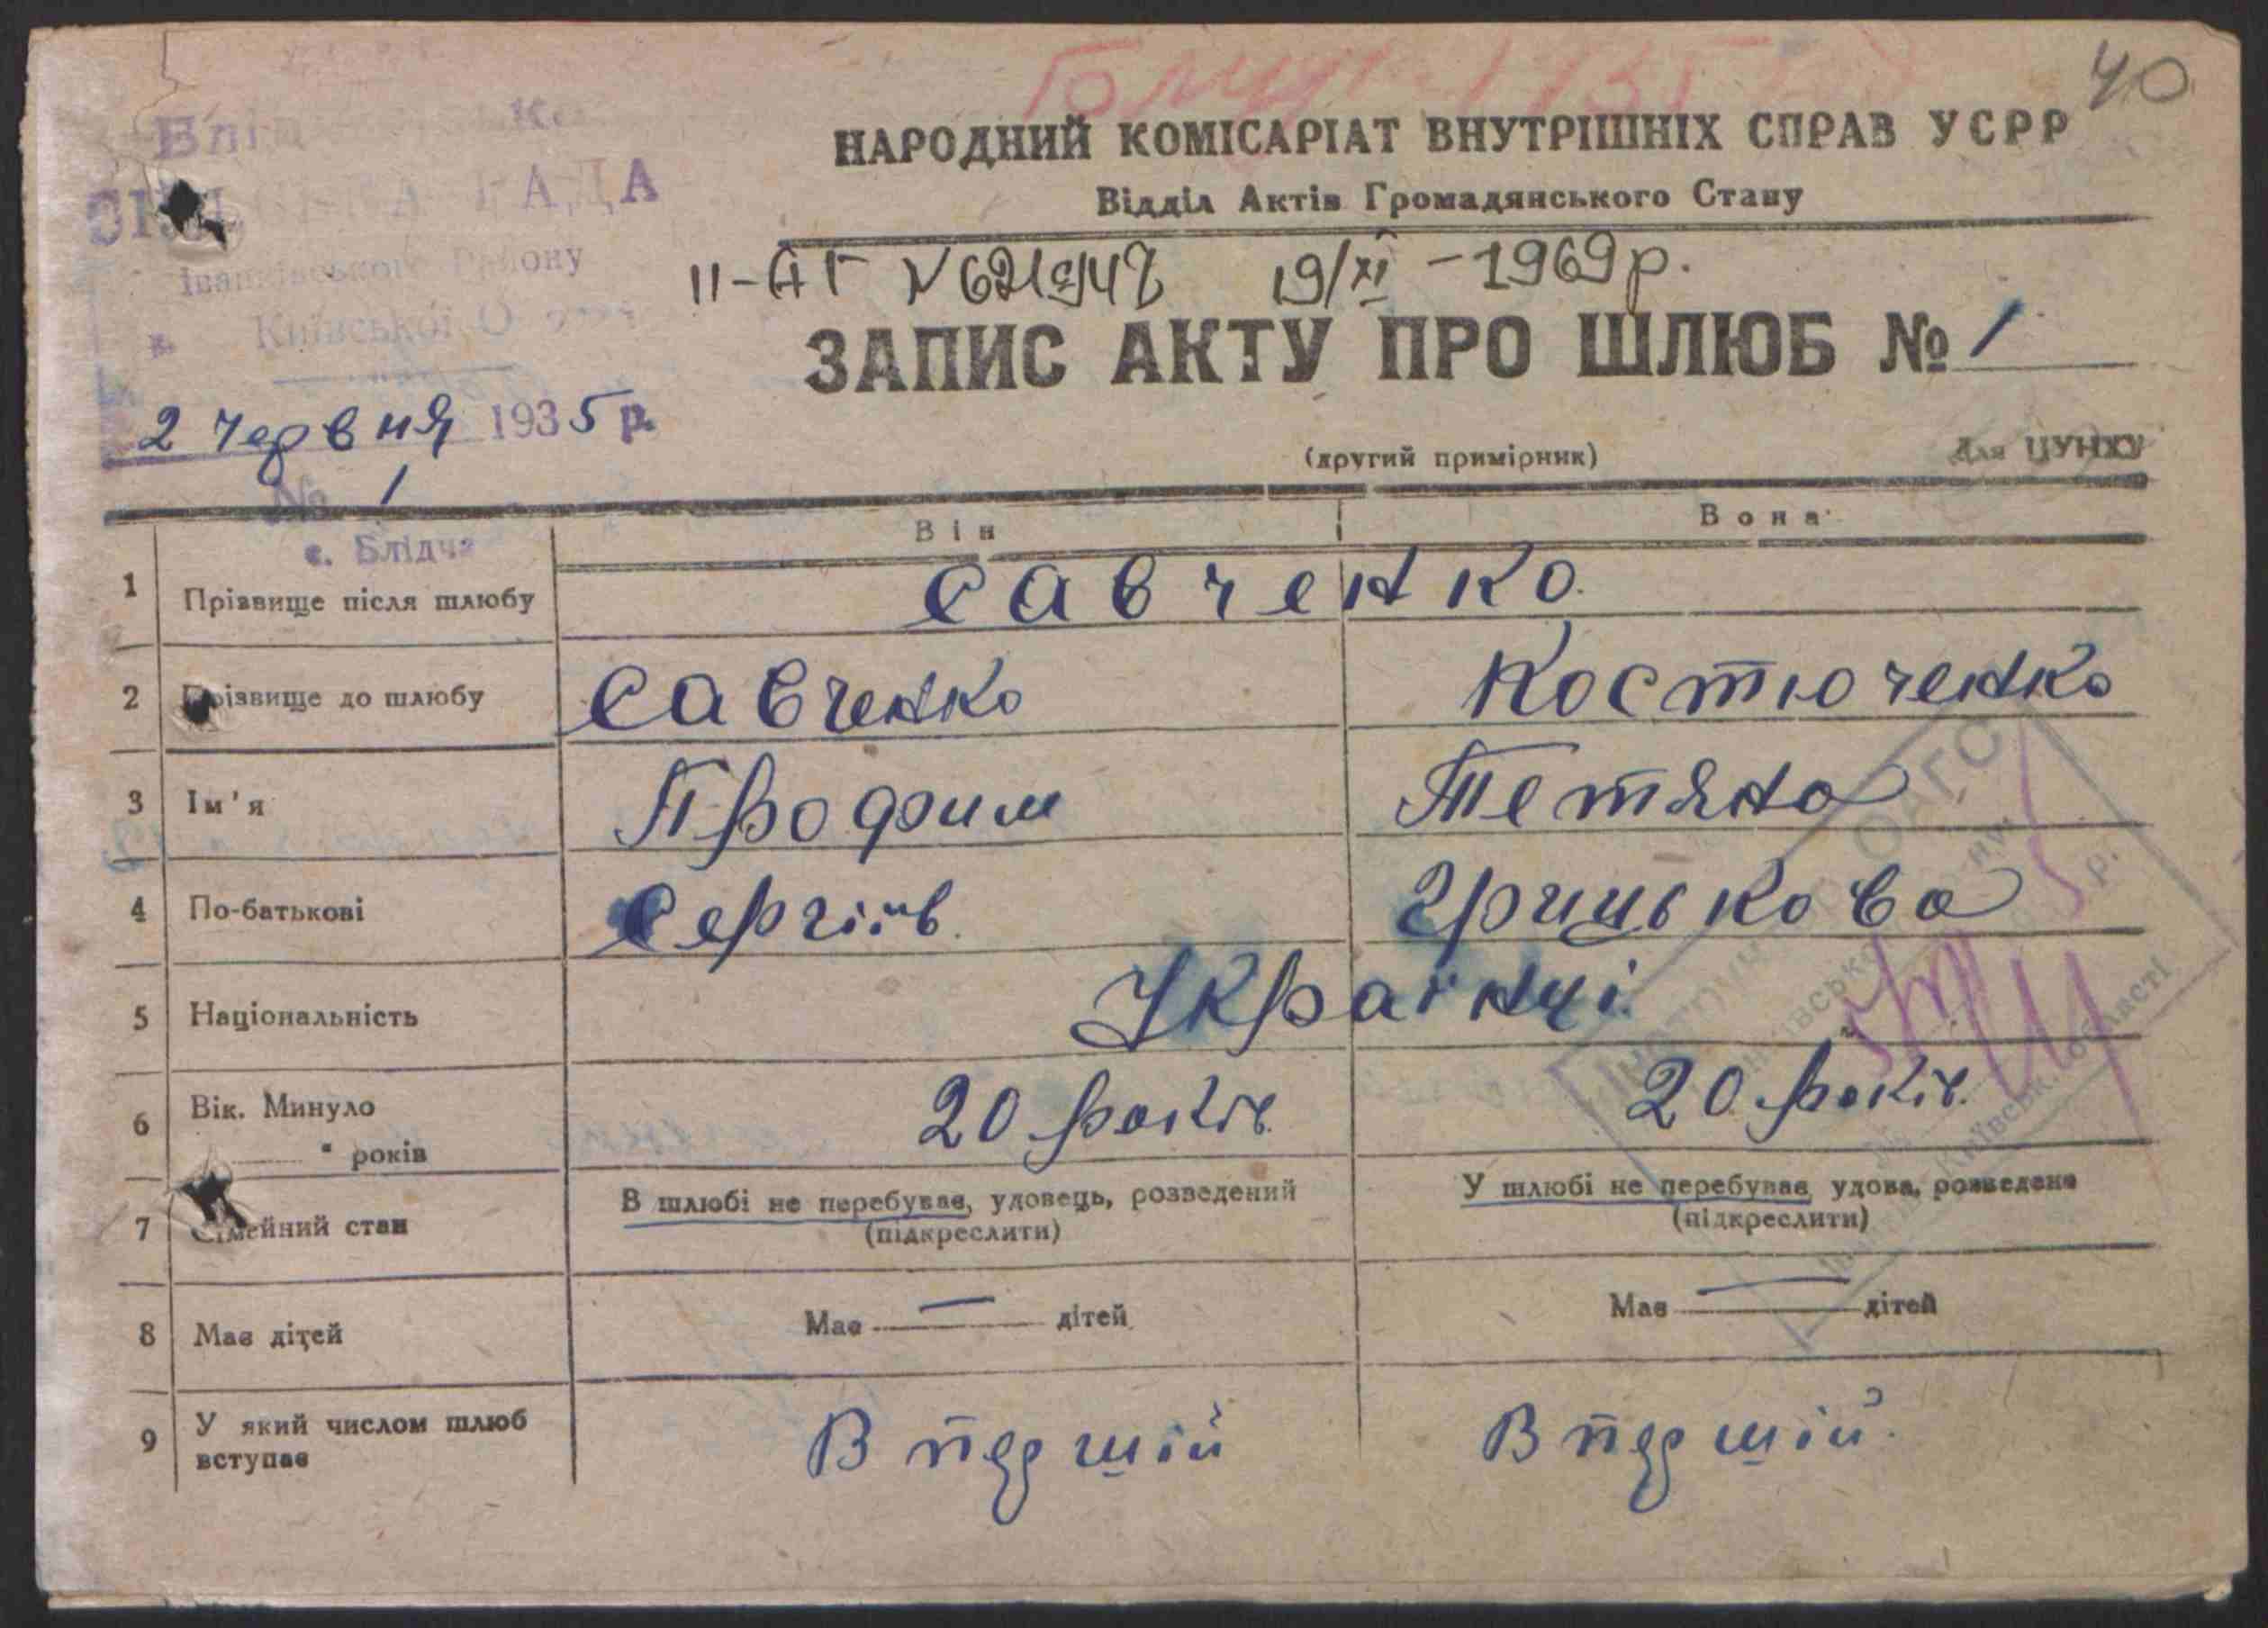 40
НАРОДНИЙ КОМІСАРІАТ ВНУТРІШНІХ СПРАВ УСРР
Відділ Актів Громадянського Стану
РАДА
Іванківського Району
Київської
19/XI - 1969 р.
ЗАПИС АКТУ ПРО ШЛЮБ № 1
2 червня 1935 р.
(другий примірник) Для ЦУНХУ
№ 1
с. Блідча
Він Вона
1 Прізвище після шлюбу Савченко
2 Прізвище до шлюбу Савченко Костюченко
3 Ім'я Профим Тетяна
4 По-батькові Сергіїв Грицькова
5 Національність Українці
6 Вік. Минуло років 20 років 20 років
7 Сімейний стан В шлюбі не перебував, удовець, розведений (підкреслити) У шлюбі не перебував, удова, розведена (підкреслити)
8 Має дітей Має — дітей Має — дітей
9 У який числом шлюб вступає В першій В першій